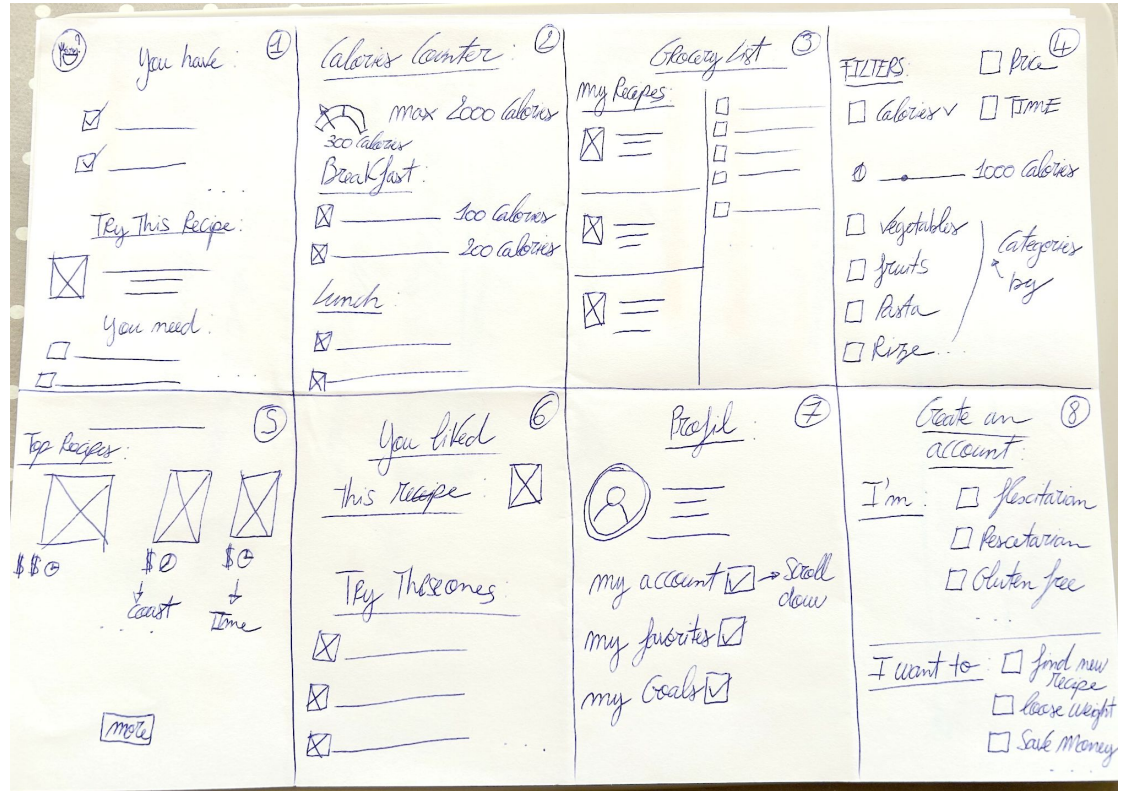 You have : ①
....
Try This Recipe:
You need :
Calories Counter : ②
max 2000 Calories
300 Calories
Breakfast :
100 Calories
200 Calories
Lunch :
Grocery List ③
My Recipes:
....
④
FILTERS: Price
Calories v TIME
0 1000 Calories
Vegetables
fruits
Pasta
Rize ....
Categories
by
⑤
Top Recipes :
$$ $ $
Coast Time
...
more
You liked ⑥
this recipe :
Try These ones:
....
Profil : ⑦
my account → Scroll
down
my favorites
my Goals
Create an ⑧
account :
I'm : flexitarian
Pescetarian
Gluten free
....
I want to : find new
recipe
loose weight
Save Money
....